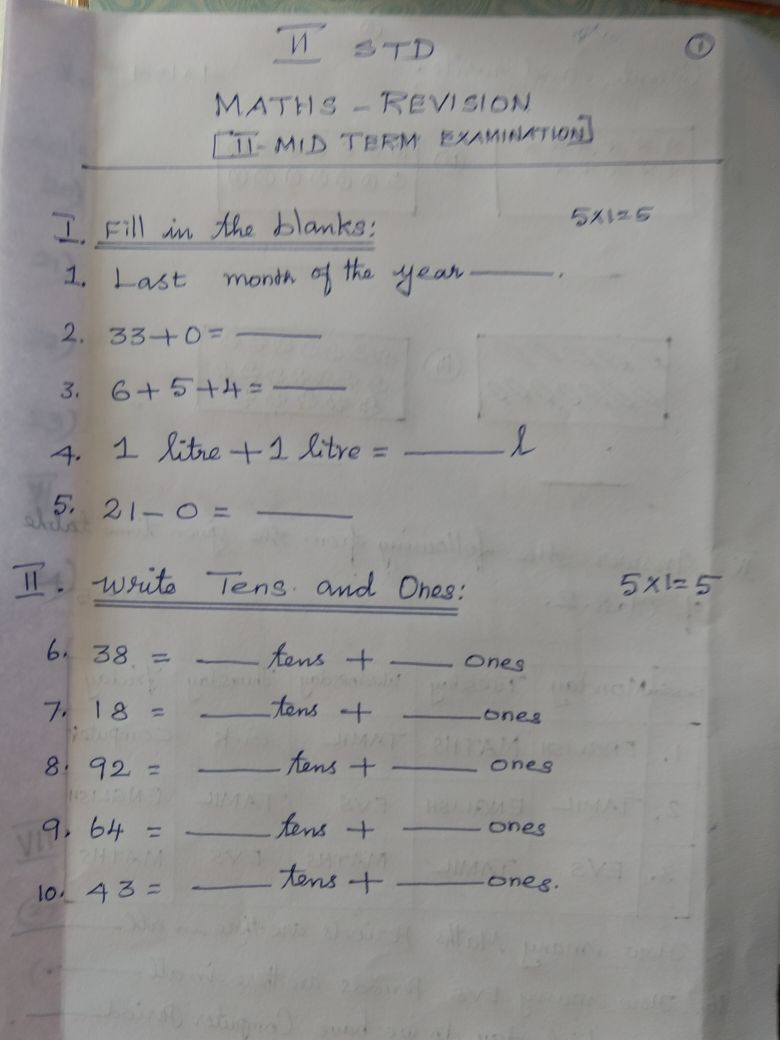 II STD
1
MATHS - REVISION
[II - MID TERM EXAMINATION]
I. Fill in the blanks: 5x1=5
1. Last month of the year ———.
2. 33+0= ———
3. 6+5+4= ———
4. 1 litre + 1 litre = ——— l
5. 21-0 = ———
II. Write Tens and Ones: 5x1=5
6. 38 = ——— tens + ——— ones
7. 18 = ——— tens + ——— ones
8. 92 = ——— tens + ——— ones
9. 64 = ——— tens + ——— ones
10. 43 = ——— tens + ——— ones.